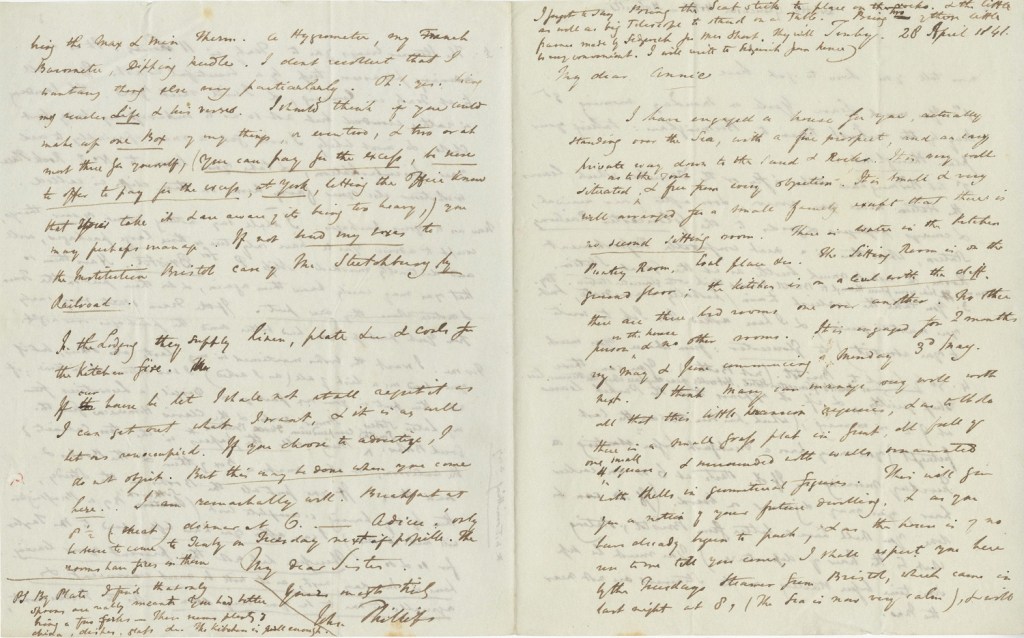 I forgot to say Bring the Seat stick to place on the rocks. & the little
as well as big Telescope to stand on a Table. Bring two of those little
frames made by Sedgwick for Mrs Short. They will
be very convenient. (I will write to Sedgwick from hence)
Tenby. 28 April 1841.
My dear Annie
I have engaged a house for you, actually
standing over the Sea, with a fine prospect, and an easy
private way down to the Sand & Rocks. It is very well
situated, as to the Town & free from every objection. It is small & very
well arranged for a small family except that there is
no second sitting room. There is water in the Kitchen
Pantry Room, Coal place &c. The Sitting Room is on the
ground floor. The Kitchen is on a level with the cliff.
there are three bed rooms one over another. No other
person in the house & no other rooms. It is engaged for 2 months
viz May & June commencing Monday 3d May.
next. I think Mary can manage very well with
all that this little requires, & as to
there is a small grass plat in front all full of
one small square, & surrounded with walls ornamented
with shells in geometrical figures. This will give
you a notion of your future dwelling. & as you
have already begun to pack, & as the house is of no
use to me till you come, I shall expect you here
by the Tuesdays Steamer from Bristol, which came in
last night at 8, (The Sea is now very calm), & will
bring the Max & Min Therm. a Hygrometer, my French
Barometer, Dipping needle. I dont recollect that I
want any thing else very particularly. Oh! yes. bring
my uncles Life & his verses. I should think if you could
make up one Box of my things, & two or at
most three for yourself, (You can pay for the excess, be sure
to offer to pay for the excess, at York, letting the Office know
that you take it & are aware of its being too heavy,) you
may perhaps manage. If not send my boxes to
the Institution Bristol care of Mr Stutchbury by
Railroad.
In the Lodging they supply linen, plate &c & cooks for
the Kitchen fire.
If our house be let I shall not at all regret it as
I can get out what I want, & it is as well
let as unoccupied. If you choose to advertize, I
do not object. But this may be done when you come
here. I am remarkably well. Breakfast at
8½ (meat) dinner at 6. — Adieu! only
be sure to come to Tenby on Tuesday next if possible. The
rooms have fires in them
My dear Sister
Yours most truly
John Phillips
PS By Plate I find that only
spoons are really meant. You had better
bring a few forks — There seems plenty of
china, dishes, &c The Kitchen is well enough.